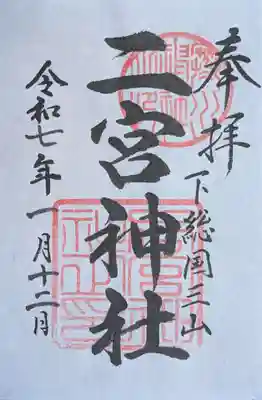 奉拝
下総国三山
二宮神社
令和七年一月十二日